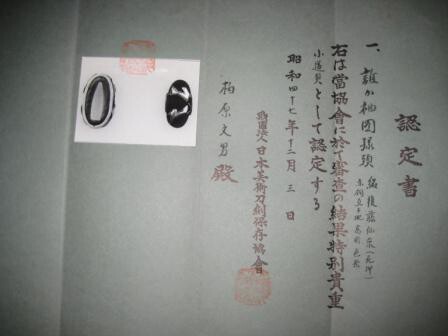 認定書
一、誰か袖図縁頭 縞後藤仙乗(花押)
赤銅魚子地 高彫 色絵
右は當協會に於て審査の結果特別貴重
小道具として認定する
昭和四十七年十二月三日
財團法人日本美術刀劍保存協會
柏原文男殿